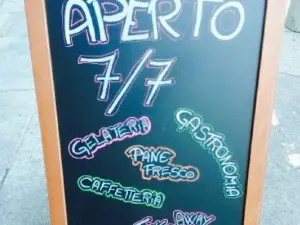 APERTO
7/7
GELATERIA
GASTRONOMIA
PANE
FRESCO
CAFFETTERIA
AWAY